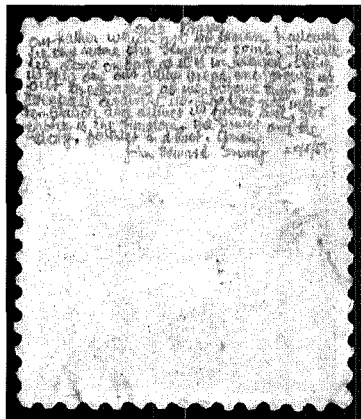 Lord's Prayer
Our Father who art in heaven hallowed
be thy name thy kingdom come, thy will
be done on earth as it is in heaven. Give
us this day our daily bread, and forgive us
our trespasses as we forgive those who
trespass against us, and lead us not into
temptation and deliver us from evil, for
thine is the kingdom, the power, and the
glory, forever and ever. Amen.
Edward